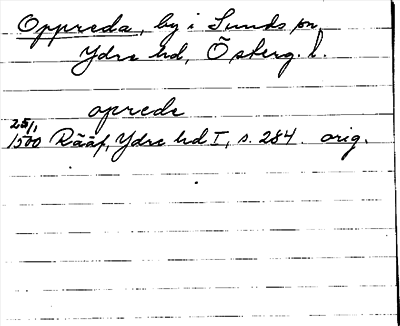 Oppreda, by i Sunds sn,
Ydre hd, Österg. l.
oprede
25/1
1500 Rääf, Ydre hd I, s. 284. orig.